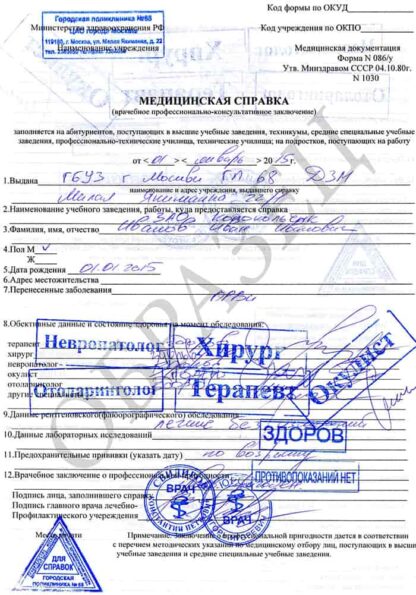 Код формы по ОКУД
Городская поликлиника №68
ЦАО города Москвы
119180, г. Москва, ул. Малая Якиманка, д. 22
Министерство здравоохранения РФ
Код учреждения по ОКПО
Наименование учреждения
Медицинская документация
Форма N 086/у
Утв. Минздравом СССР 04.10.80г.
N 1030
МЕДИЦИНСКАЯ СПРАВКА
(врачебное профессионально-консультативное заключение)
заполняется на абитуриентов, поступающих в высшие учебные заведения, техникумы, средние специальные учебные
заведения, профессионально-технические училища, технические училища; на подростков, поступающих на работу
от < 01 > январь > 20 15 г.
1.Выдана ГБУЗ г Москвы ГП 68 ДЗМ
Малая Якиманка 22/
наименование и адрес учреждения, выдавшего справку
2.Наименование учебного заведения, работы, куда предоставляется справка
ЗАО
3.Фамилия, имя, отчество Иванов Иван Иванович
4.Пол М V
Ж
5.Дата рождения 01.01.2015
6.Адрес местожительства
7.Перенесенные заболевания ОРВИ
8.Обективные данные и состояние здоровья на момент обследования:
терапевт
хирург
невропатолог
окулист
отоларинголог
другие специалисты
Невропатолог Хирург
Отоларинголог Терапевт
Окулист
9.Данные рентгеновского(флюорографического) обследования
легкие без
10.Данные лабораторных исследований
ЗДОРОВ
11.Предохранительные прививки (указать дату) по возрасту
12.Врачебное заключение о профессиональной пригодности
ПРОТИВОПОКАЗАНИЙ НЕТ
Подпись лица, заполнившего справку
Подпись главного врача лечебно-
Профилактического учереждения
ВРАЧ
ВРАЧ
Место печати
Примечание. Заключение о профессиональной пригодности дается в соответствии
с перечнем методических указания по медицинскому отбору лиц, поступающих в высшие
учебные заведения и средние специальные учебные заведения.
ДЛЯ
СПРАВОК
ГОРОДСКАЯ
ПОЛИКЛИНИКА № 68
ОБРАЗЕЦ